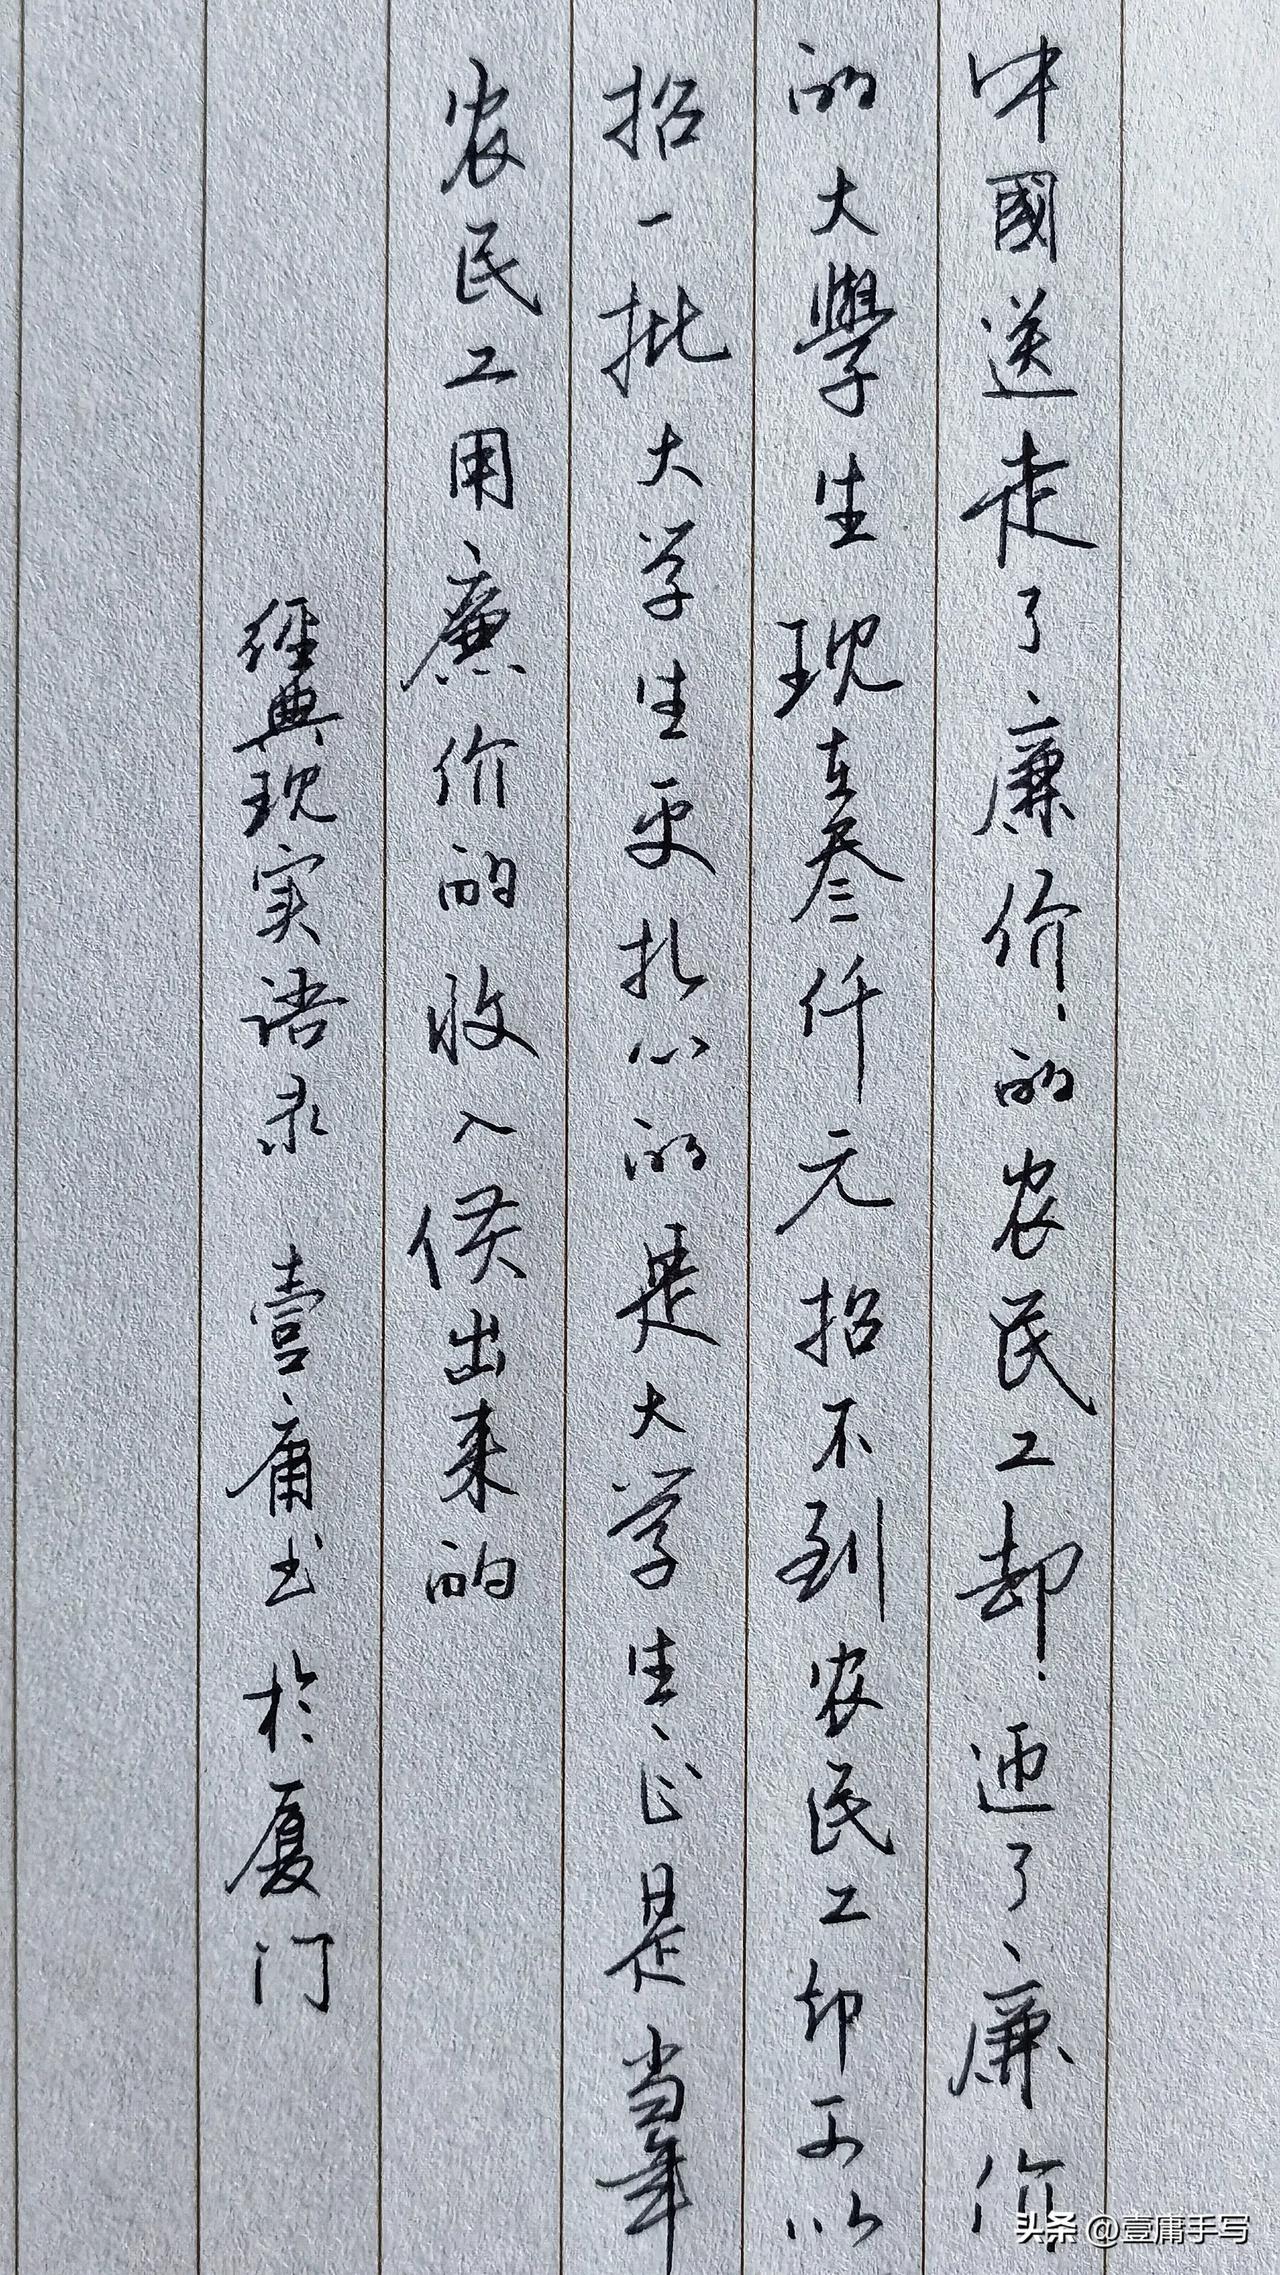 中國送走了廉价的农民工却迎了廉价
的大學生现在叁仟元招不到农民工却可以
招一批大学生更扎心的是大学生正是当年
农民工用廉价的收入供出来的
經典现实语录 壹庸书於厦门
头条 @壹庸手写